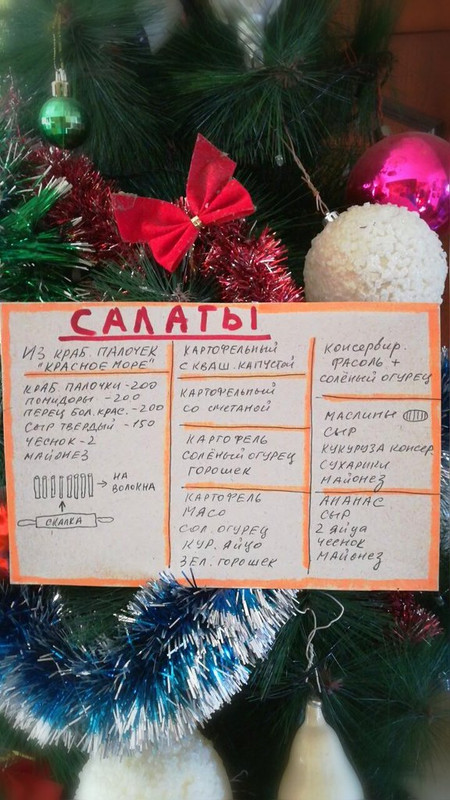 САЛАТЫ
ИЗ КРАБ. ПАЛОЧЕК
"КРАСНОЕ МОРЕ"
КРАБ. ПАЛОЧКИ-200
ПОМИДОРЫ -200
ПЕРЕЦ БОЛ. КРАС.-200
СЫР ТВЕРДЫЙ -150
ЧЕСНОК-2
МАЙОНЕЗ
НА
ВОЛОКНА
СКАЛКА
КАРТОФЕЛЬНЫЙ
С КВАШ. КАПУСТОЙ
КАРТОФЕЛЬНЫЙ
СО СМЕТАНОЙ
КАРТОФЕЛЬ
СОЛЁНЫЙ ОГУРЕЦ
ГОРОШЕК
КАРТОФЕЛЬ
МЯСО
СОЛ. ОГУРЕЦ
КУР. ЯЙЦО
ЗЕЛ. ГОРОШЕК
КОНСЕРВИР.
ФАСОЛЬ +
СОЛЁНЫЙ ОГУРЕЦ
МАСЛИНЫ
СЫР
КУКУРУЗА КОНСЕР
СУХАРИКИ
МАЙОНЕЗ
АНАНАС
СЫР
2 ЯЙЦА
ЧЕСНОК
МАЙОНЕЗ